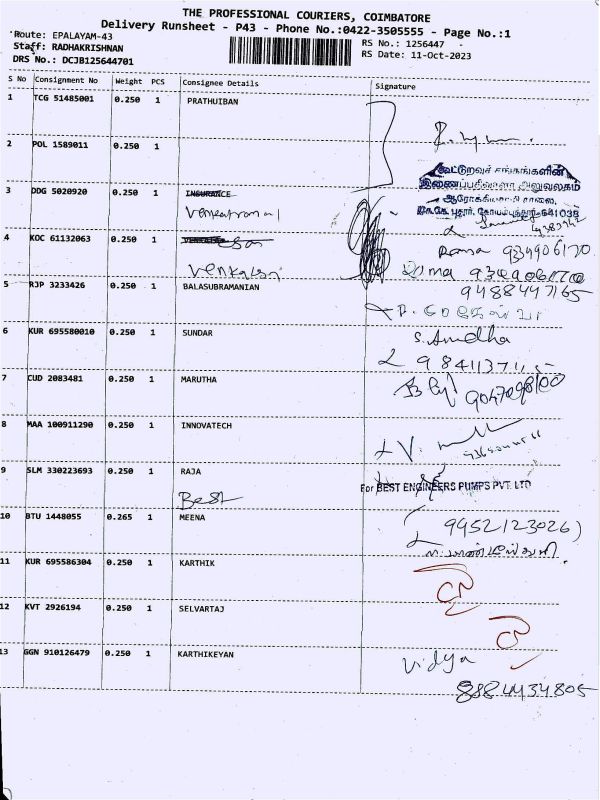 THE PROFESSIONAL COURIERS, COIMBATORE
Delivery Runsheet - P43 - Phone No.:0422-3505555 - Page No.:1
Route: EPALAYAM-43
RS No.: 1256447
Staff: RADHAKRISHNAN
RS Date: 11-Oct-2023
DRS No.: DCJB125644701
S No Consignment No Weight PCS Consignee Details Signature
1 TCG 51485001 0.250 1 PRATHUIBAN
2 POL 1589011 0.250 1
கூட்டுறவுச் சங்கங்களின்
இணைப்பதிவாளர் அலுவலகம்
3 DDG 5020920 0.250 1 INSURANCE
4 KOC 61132063 0.250 1
Roma
Venkatesan
Roma
5 RJP 3233426 0.250 1 BALASUBRAMANIAN
9488447165
6 KUR 695580010 0.250 1 SUNDAR
S. Amudha
7 CUD 2083481 0.250 1 MARUTHA
9047098100
8 MAA 100911290 0.250 1 INNOVATECH
9 SLM 330223693 0.250 1 RAJA
For BEST ENGINEERS PUMPS PVT. LTD
Best
10 BTU 1448055 0.265 1 MEENA
9952123026
11 KUR 695586304 0.250 1 KARTHIK
12 KVT 2926194 0.250 1 SELVARTAJ
13 GGN 910126479 0.250 1 KARTHIKEYAN
Vidya
8884434805